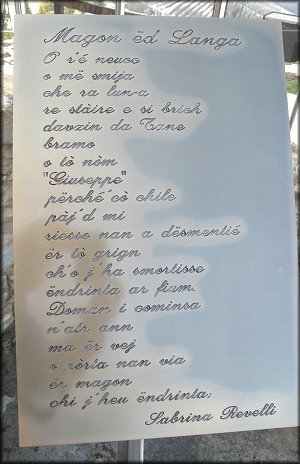 Magon ëd Langa
O r'é neucc
o më smija
che ra lun-a
re stàire e si brich
davzin da Tane
bramo
o tò nòm
"Giuseppe"
përché cò chile
pàj'd mi
riesso nan a dësmentié
ër tò grign
ch'o j'ha smortisse
ëndrinta ar fium.
Doman i cominsa
n'atr ann
ma ër vej
o pòrta nan via
ër magon
chi j'heu ëndrinta:
Sabrina Revelli